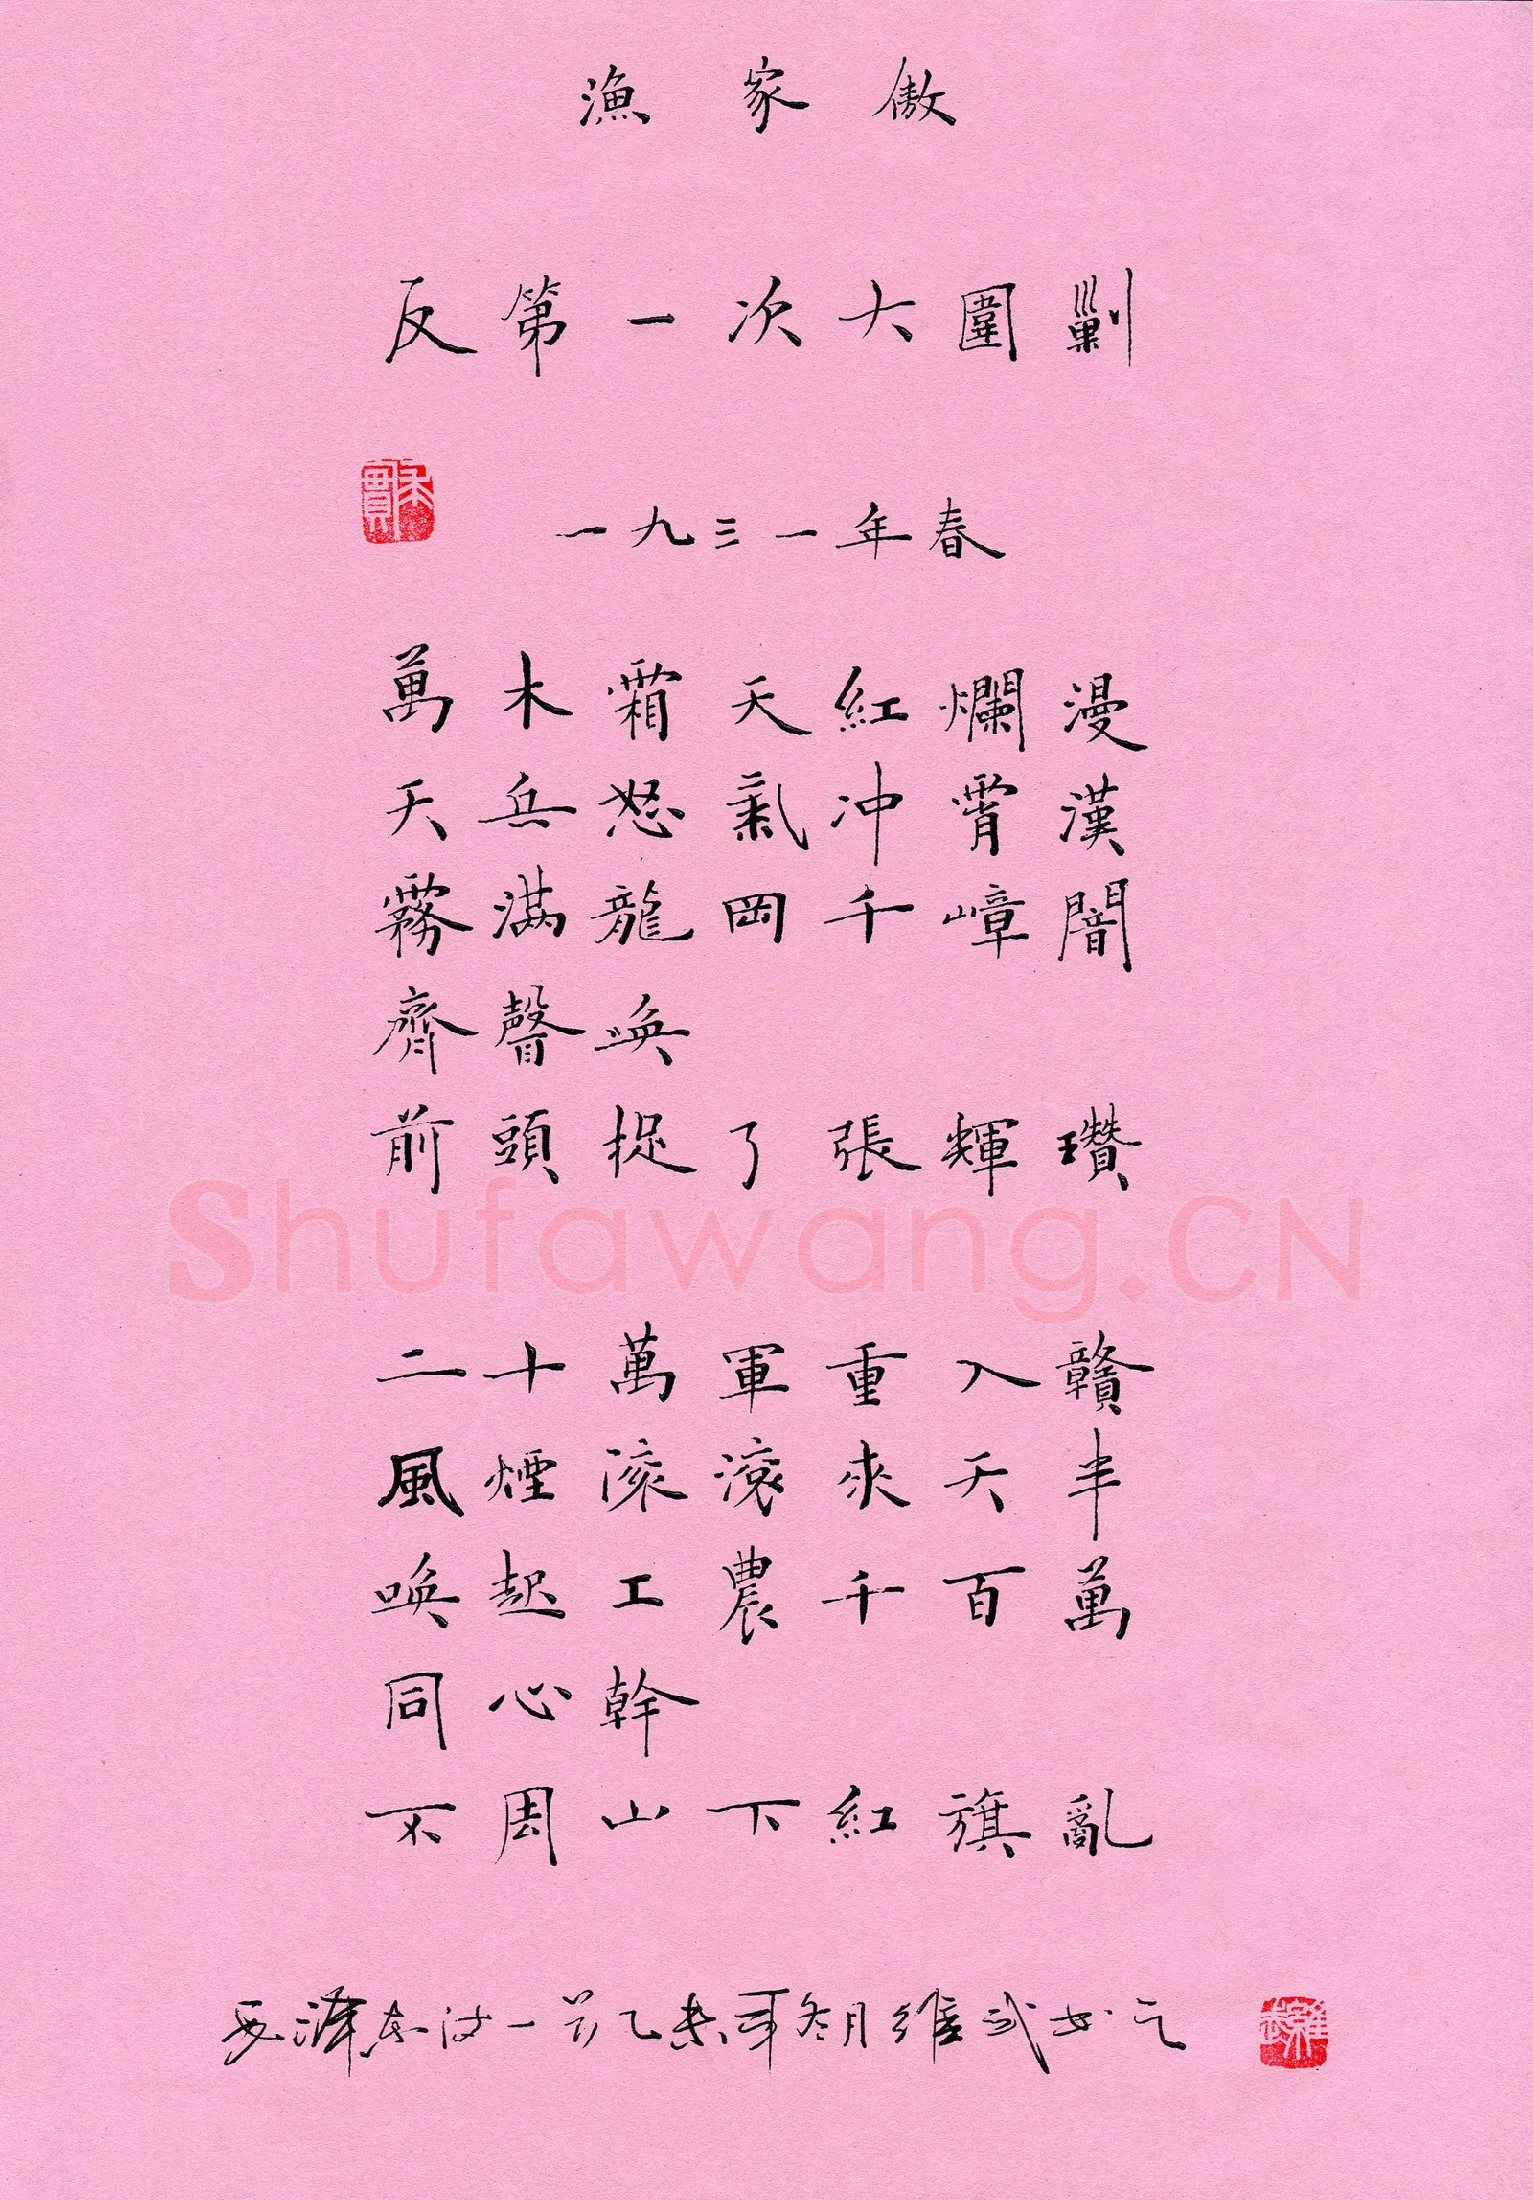 漁家傲
反第一次大圍剿
一九三一年春
萬木霜天紅爛漫
天兵怒氣冲霄漢
霧滿龍岡千嶂闇
齊聲唤
前頭捉了張輝瓚
Shufawang.CN
二十萬軍重入贛
風煙滚滚來天半
唤起工農千百萬
同心幹
不周山下紅旗亂
毛澤東詩一首乙未年冬月維武书之